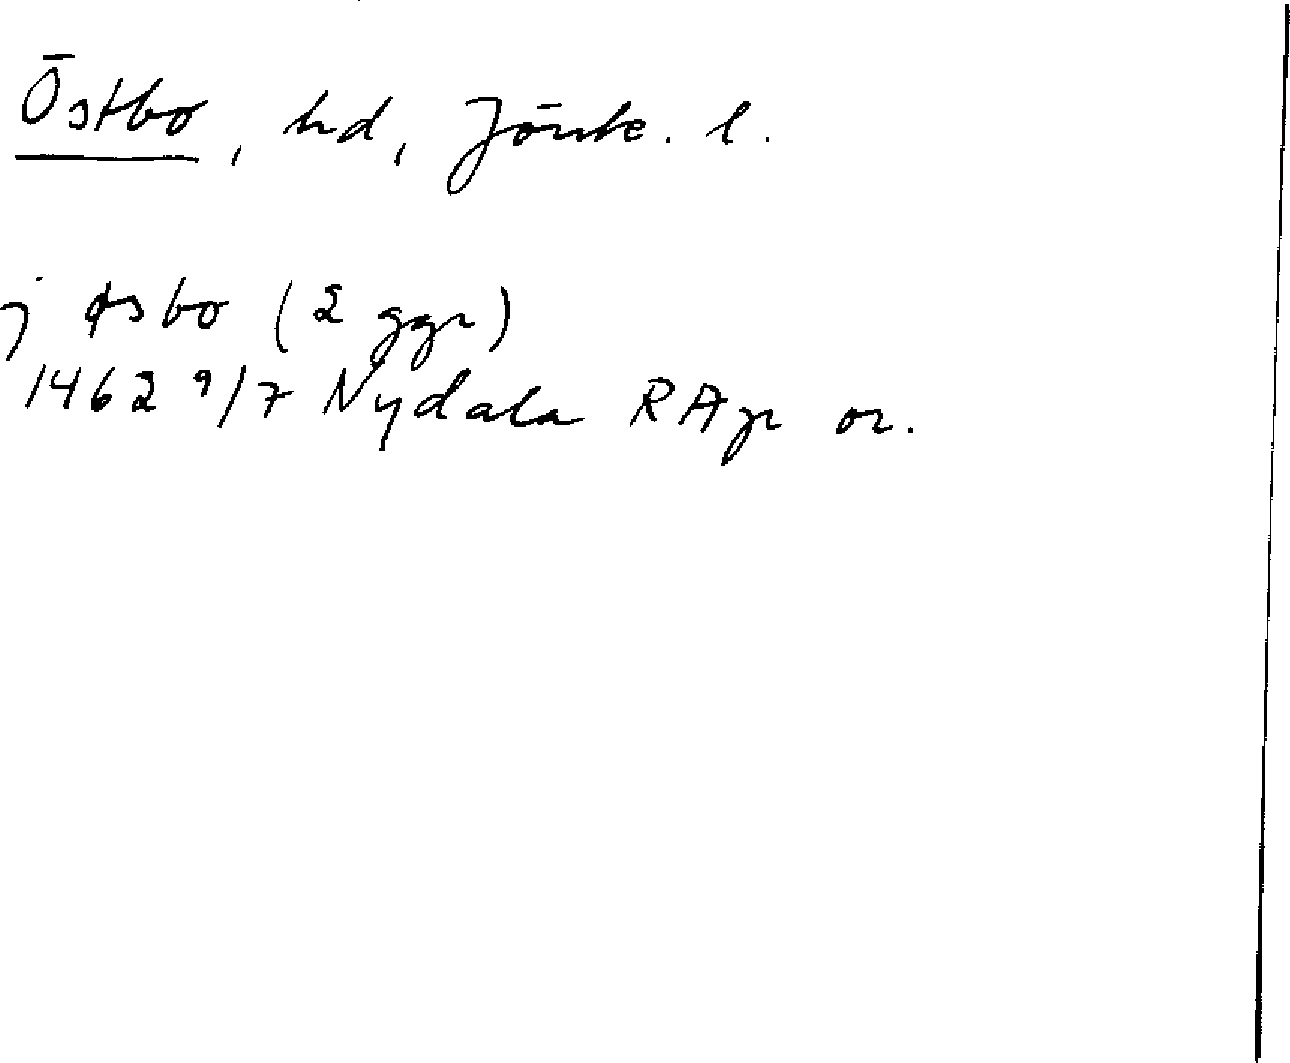 Östbo, hd, Jönk. l.
j øsbo (2 ggr)
1462 9/7 Nydala RAp or.